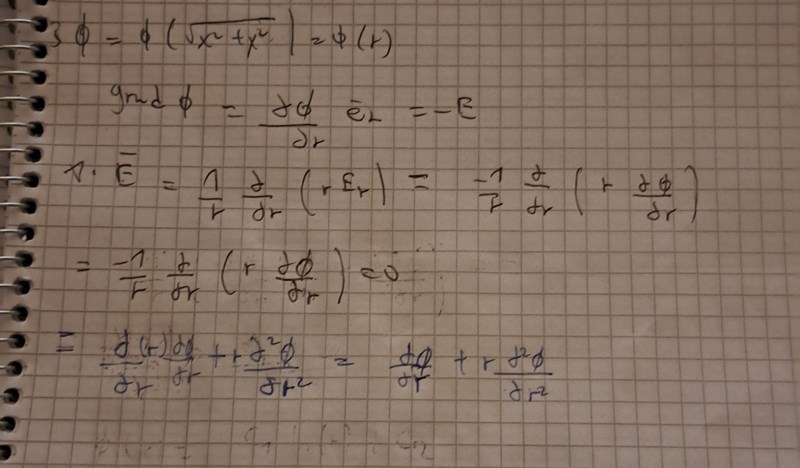 3 ϕ = ϕ (√(x² + x²)) = ϕ(r)
grad ϕ = ∂ϕ/∂r ē_r = -E
∇ · Ē = 1/r ∂/∂r (r E_r) = -1/r ∂/∂r (r ∂ϕ/∂r)
= -1/r ∂/∂r (r ∂ϕ/∂r) = 0
= ∂(r)/∂r ∂ϕ/∂r + r ∂²ϕ/∂r² = ∂ϕ/∂r + r ∂²ϕ/∂r²